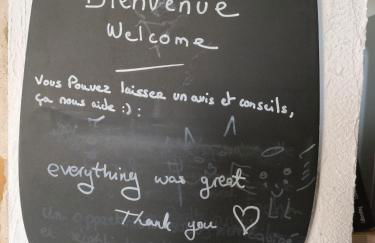 Bienvenue
Welcome
Vous Pouvez laisser un avis et conseils,
ça nous aide :) :
everything was great
Thank you ♡